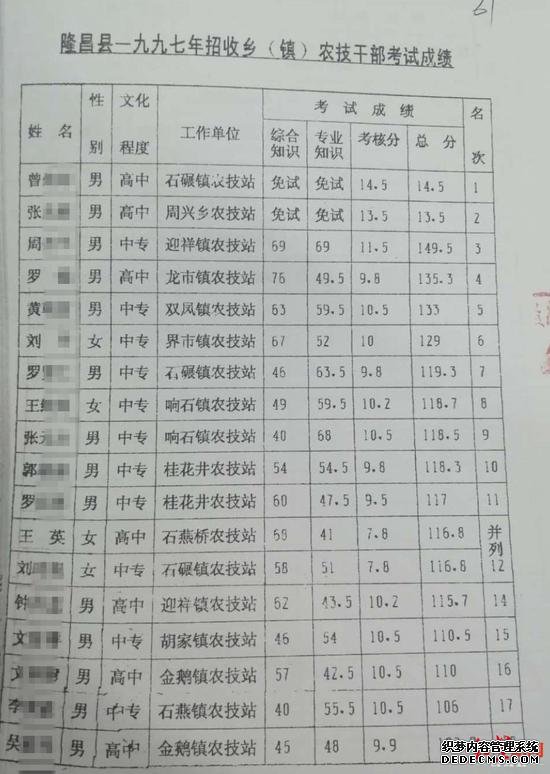 61
隆昌县一九九七年招收乡（镇）农技干部考试成绩
姓名 性别 文化程度 工作单位 考试成绩 名次
综合知识 专业知识 考核分 总分
曾 男 高中 石碾镇农技站 免试 免试 14.5 14.5 1
张 男 高中 周兴乡农技站 免试 免试 13.5 13.5 2
周 男 中专 迎祥镇农技站 69 69 11.5 149.5 3
罗 男 高中 龙市镇农技站 76 49.5 9.8 135.3 4
黄 男 中专 双凤镇农技站 63 59.5 10.5 133 5
刘 女 中专 界市镇农技站 67 52 10 129 6
罗 男 中专 石碾镇农技站 46 63.5 9.8 119.3 7
王 女 中专 响石镇农技站 49 59.5 10.2 118.7 8
张元 男 中专 响石镇农技站 40 68 10.5 118.5 9
郭 男 中专 桂花井农技站 54 54.5 9.8 118.3 10
罗 男 中专 桂花井农技站 60 47.5 9.5 117 11
王英 女 高中 石燕桥农技站 41 7.8 116.8 并列
刘 女 中专 石碾镇农技站 58 51 7.8 116.8 12
钟 男 高中 迎祥镇农技站 62 43.5 10.2 115.7 14
文 男 中专 胡家镇农技站 46 54 10.5 110.5 15
文 男 高中 金鹅镇农技站 57 42.5 10.5 110 16
李 男 中专 石燕镇农技站 40 55.5 10.5 106 17
吴 男 高中 金鹅镇农技站 45 48 9.9
织梦内容管理系统
DEDECMS.COM